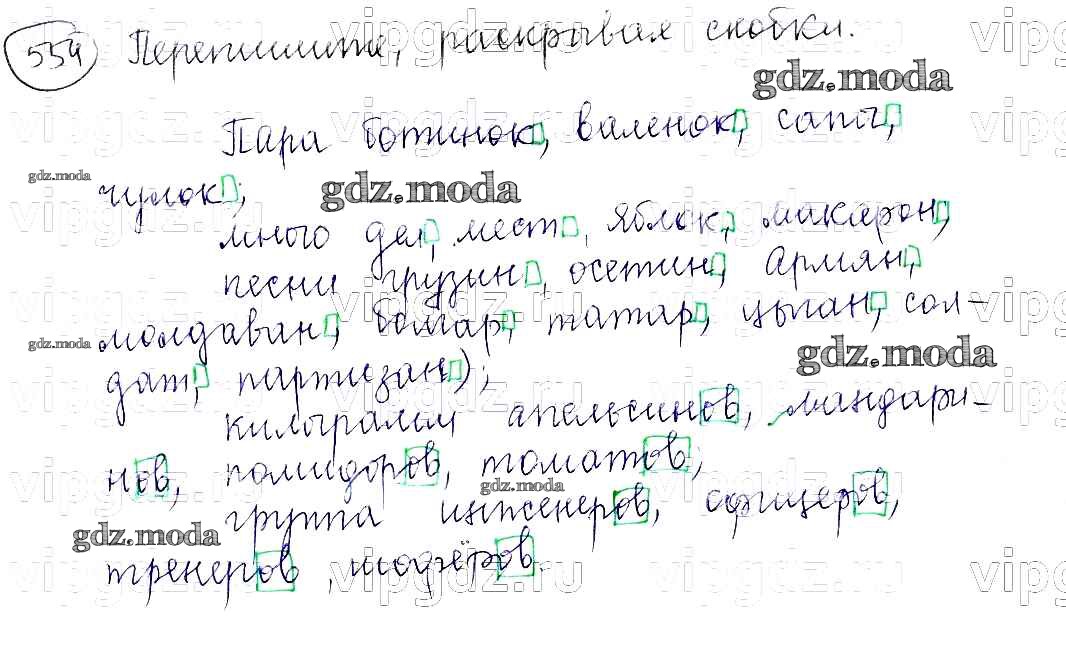 554 Перепишите, раскрывая скобки.
gdz.moda
Пара ботинок, валенок, сапог,
gdz.moda
чулок;
gdz.moda
много дел, мест, яблок, макарон,
песни грузин, осетин, армян,
молдаван, болгар, татар, цыган, сол-
gdz.moda
gdz.moda
дат, партизан);
килограмм апельсинов, мандари-
нов, помидоров, томатов,
gdz.moda
группа инженеров, офицеров,
gdz.moda
тренеров, шофёров.
vipgdz.ru